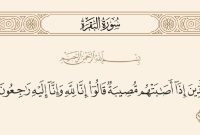 سُورَةُ الْبَقَرَةِ
بِسْمِ اللَّهِ الرَّحْمَٰنِ الرَّحِيمِ
ذِينَ إِذَآ أَصَٰبَتْهُم مُّصِيبَةٌ قَالُوٓا۟ إِنَّا لِلَّهِ وَإِنَّآ إِلَيْهِ رَٰجِعُونَ